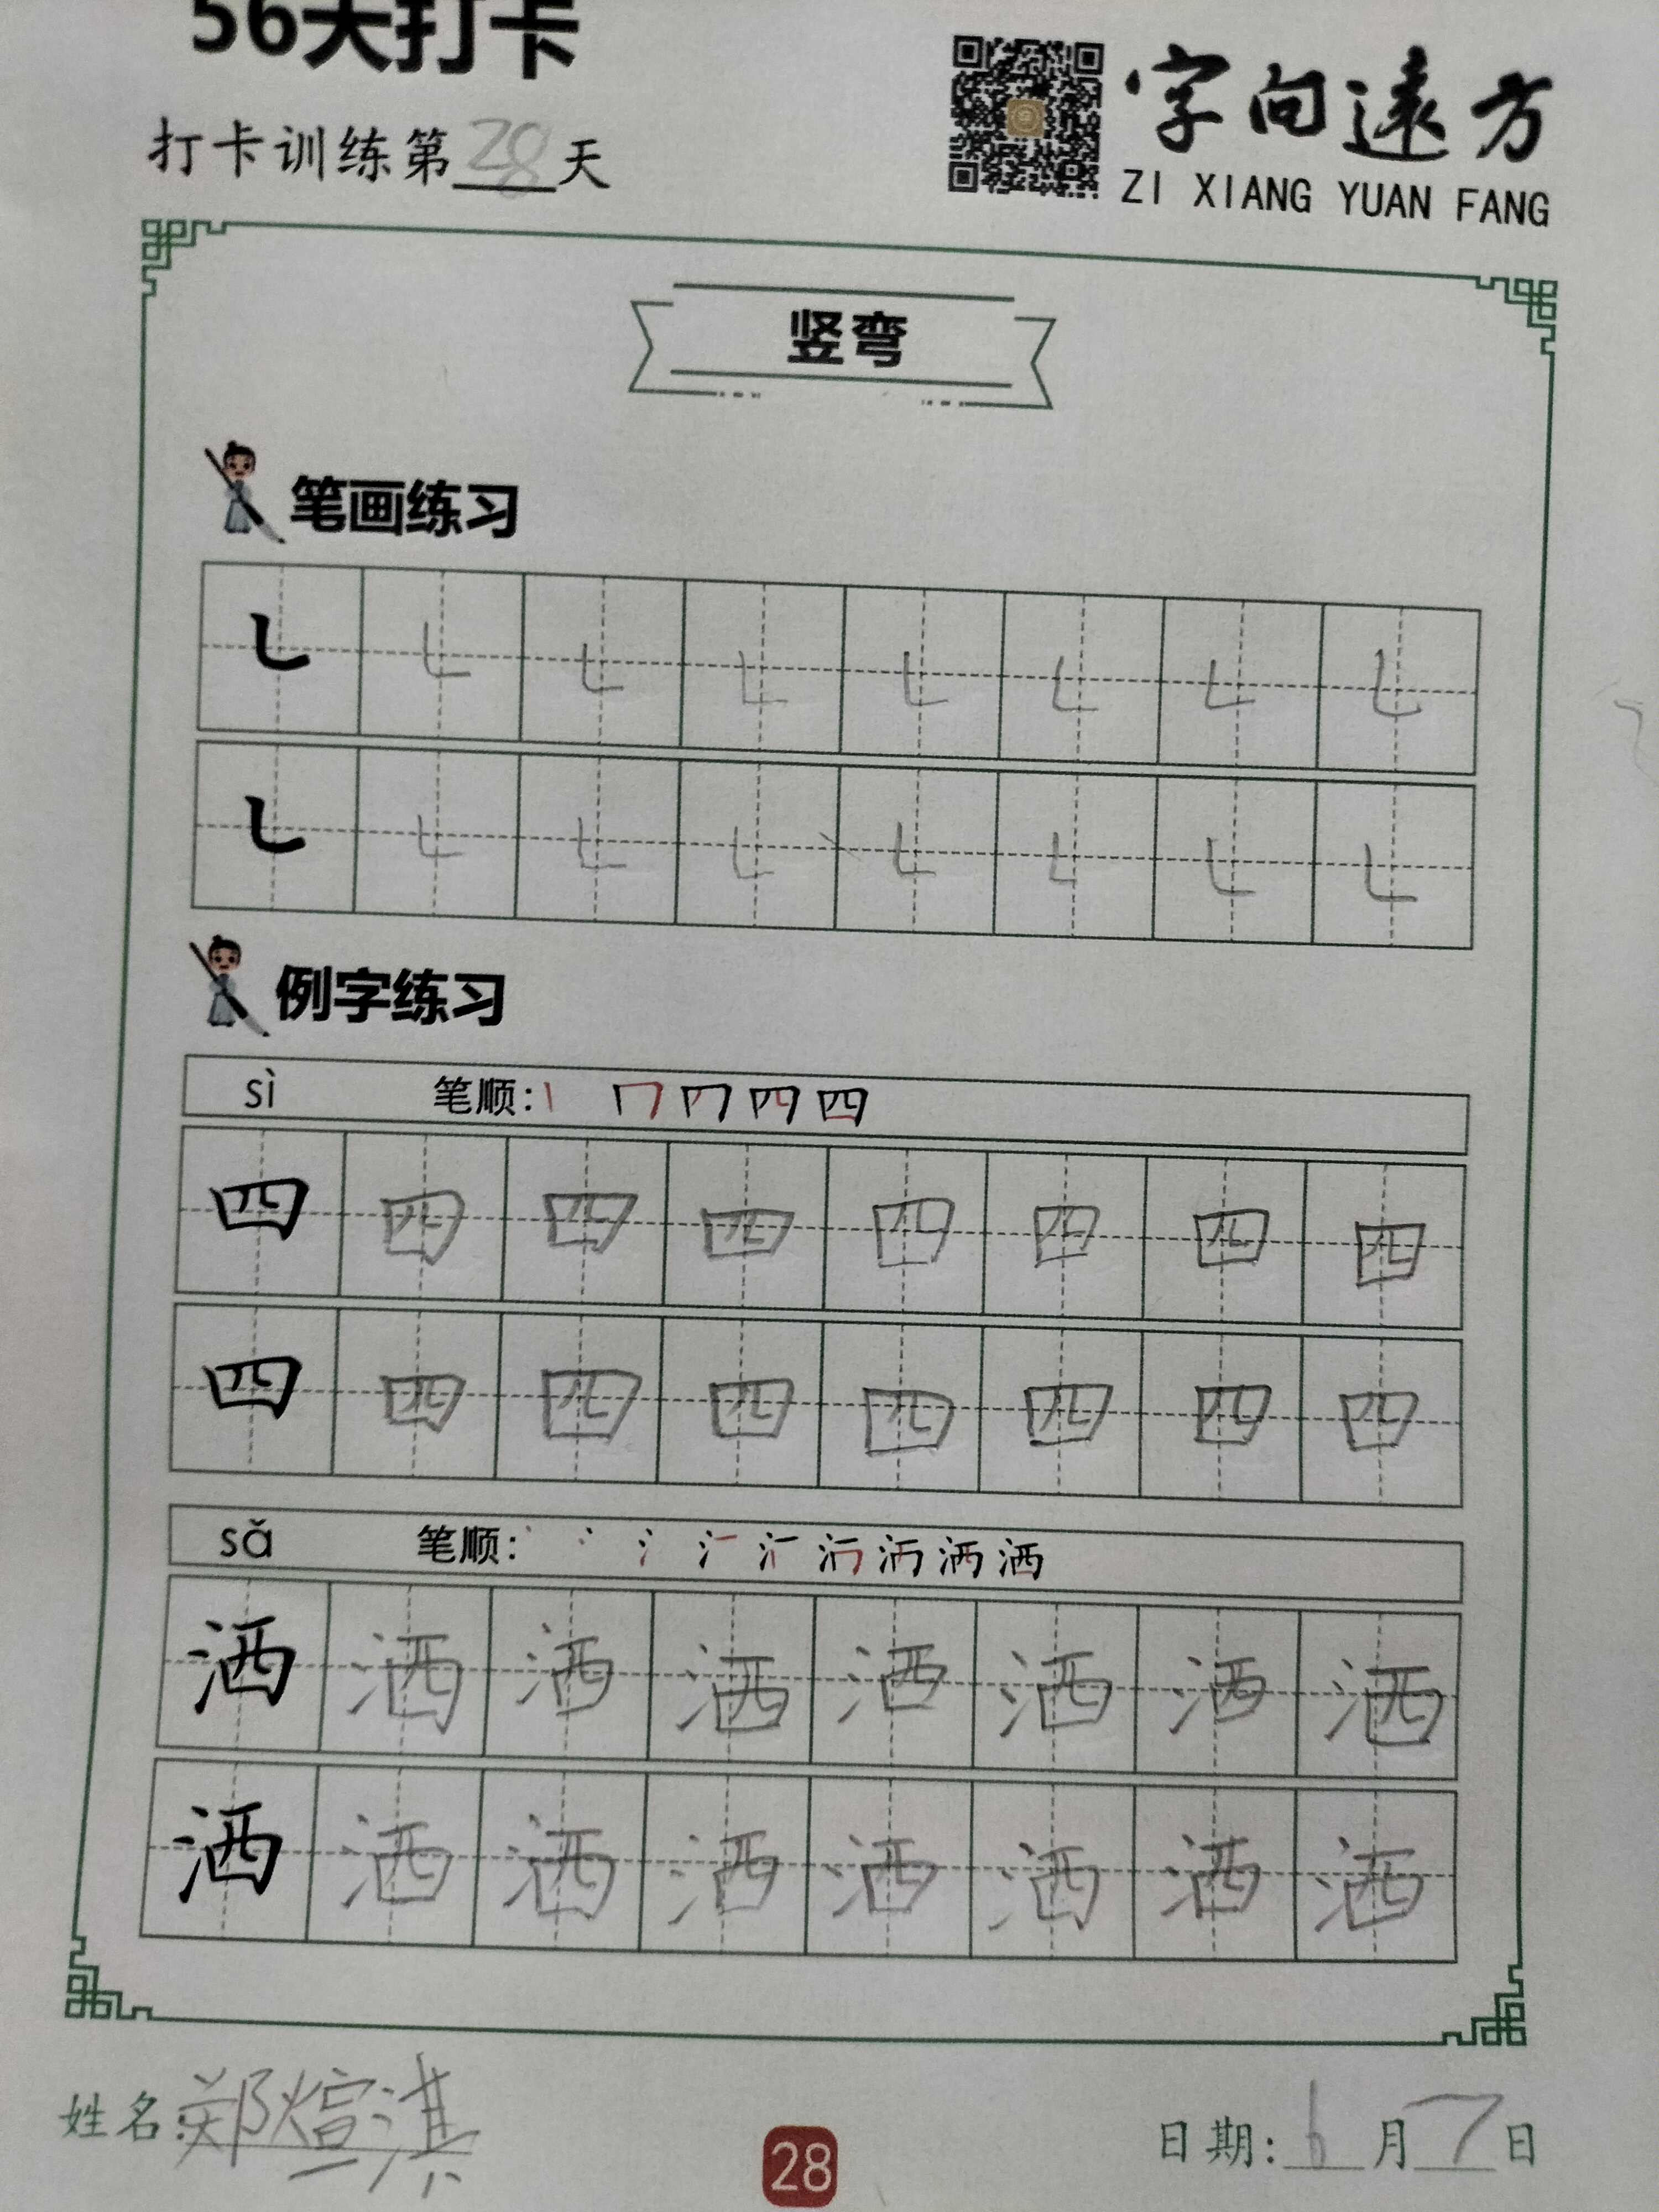 56天打卡
字向遠方
ZI XIANG YUAN FANG
打卡训练第28天
竖弯
笔画练习
㇄ ㇄ ㇄ ㇄ ㇄ ㇄ ㇄ ㇄
㇄ ㇄ ㇄ ㇄ ㇄ ㇄ ㇄ ㇄
例字练习
sì 笔顺:
四 四 四 四 四 四 四 四
四 四 四 四 四 四 四 四
sǎ 笔顺:
洒 洒 洒 洒 洒 洒 洒 洒
洒 洒 洒 洒 洒 洒 洒 洒
姓名:郑煊淇
28
日期:6月7日